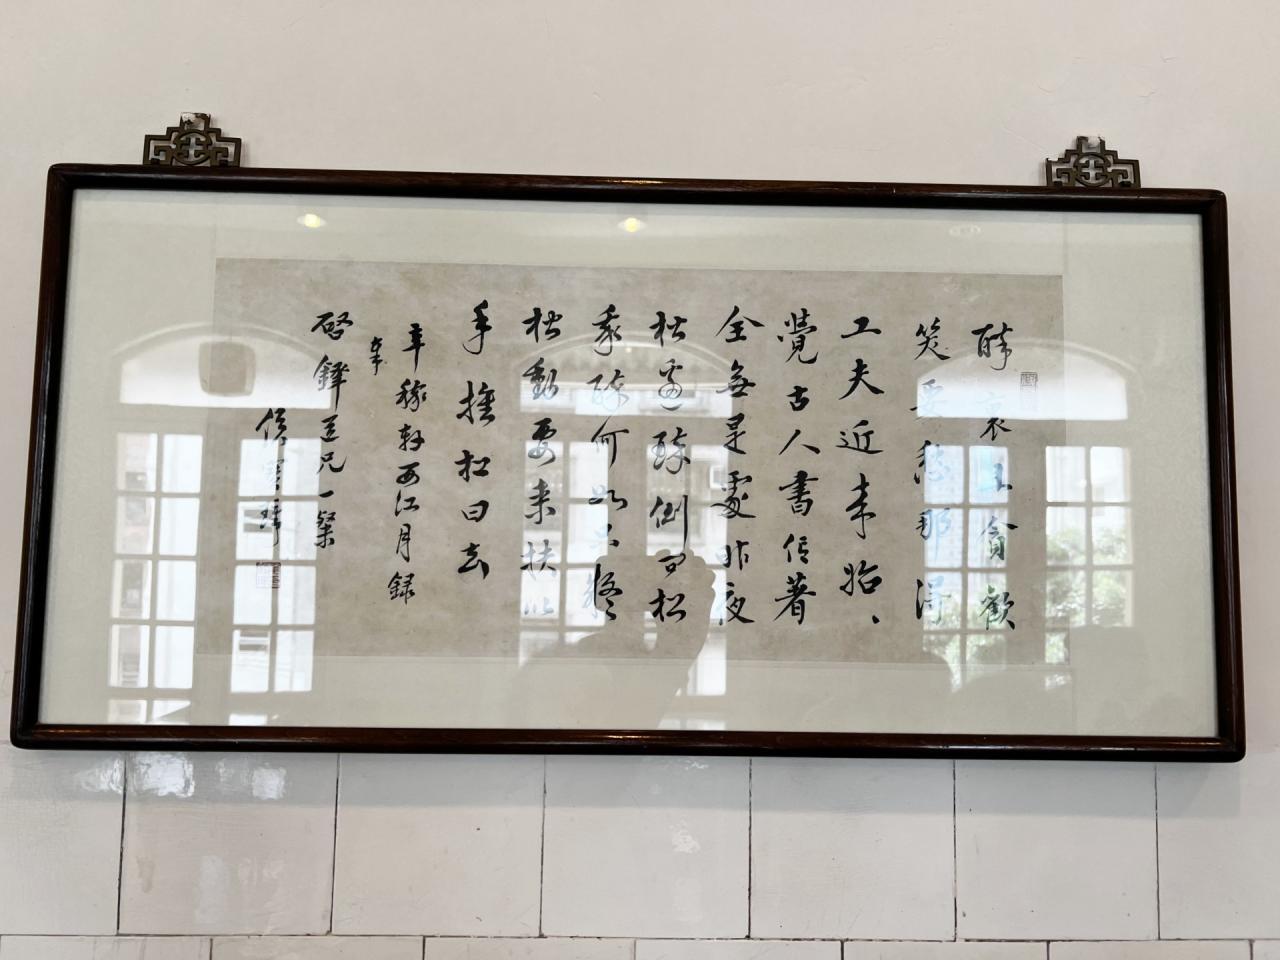 醉裏且貪歡
笑要愁那得
工夫近来始、
覺古人書信著
全無是處昨夜
松邊醉倒問松
我醉何如只疑
松動要来扶以
手推松曰去
辛稼軒西江月錄
奉
啓鐸道兄一粲
侯寶璋